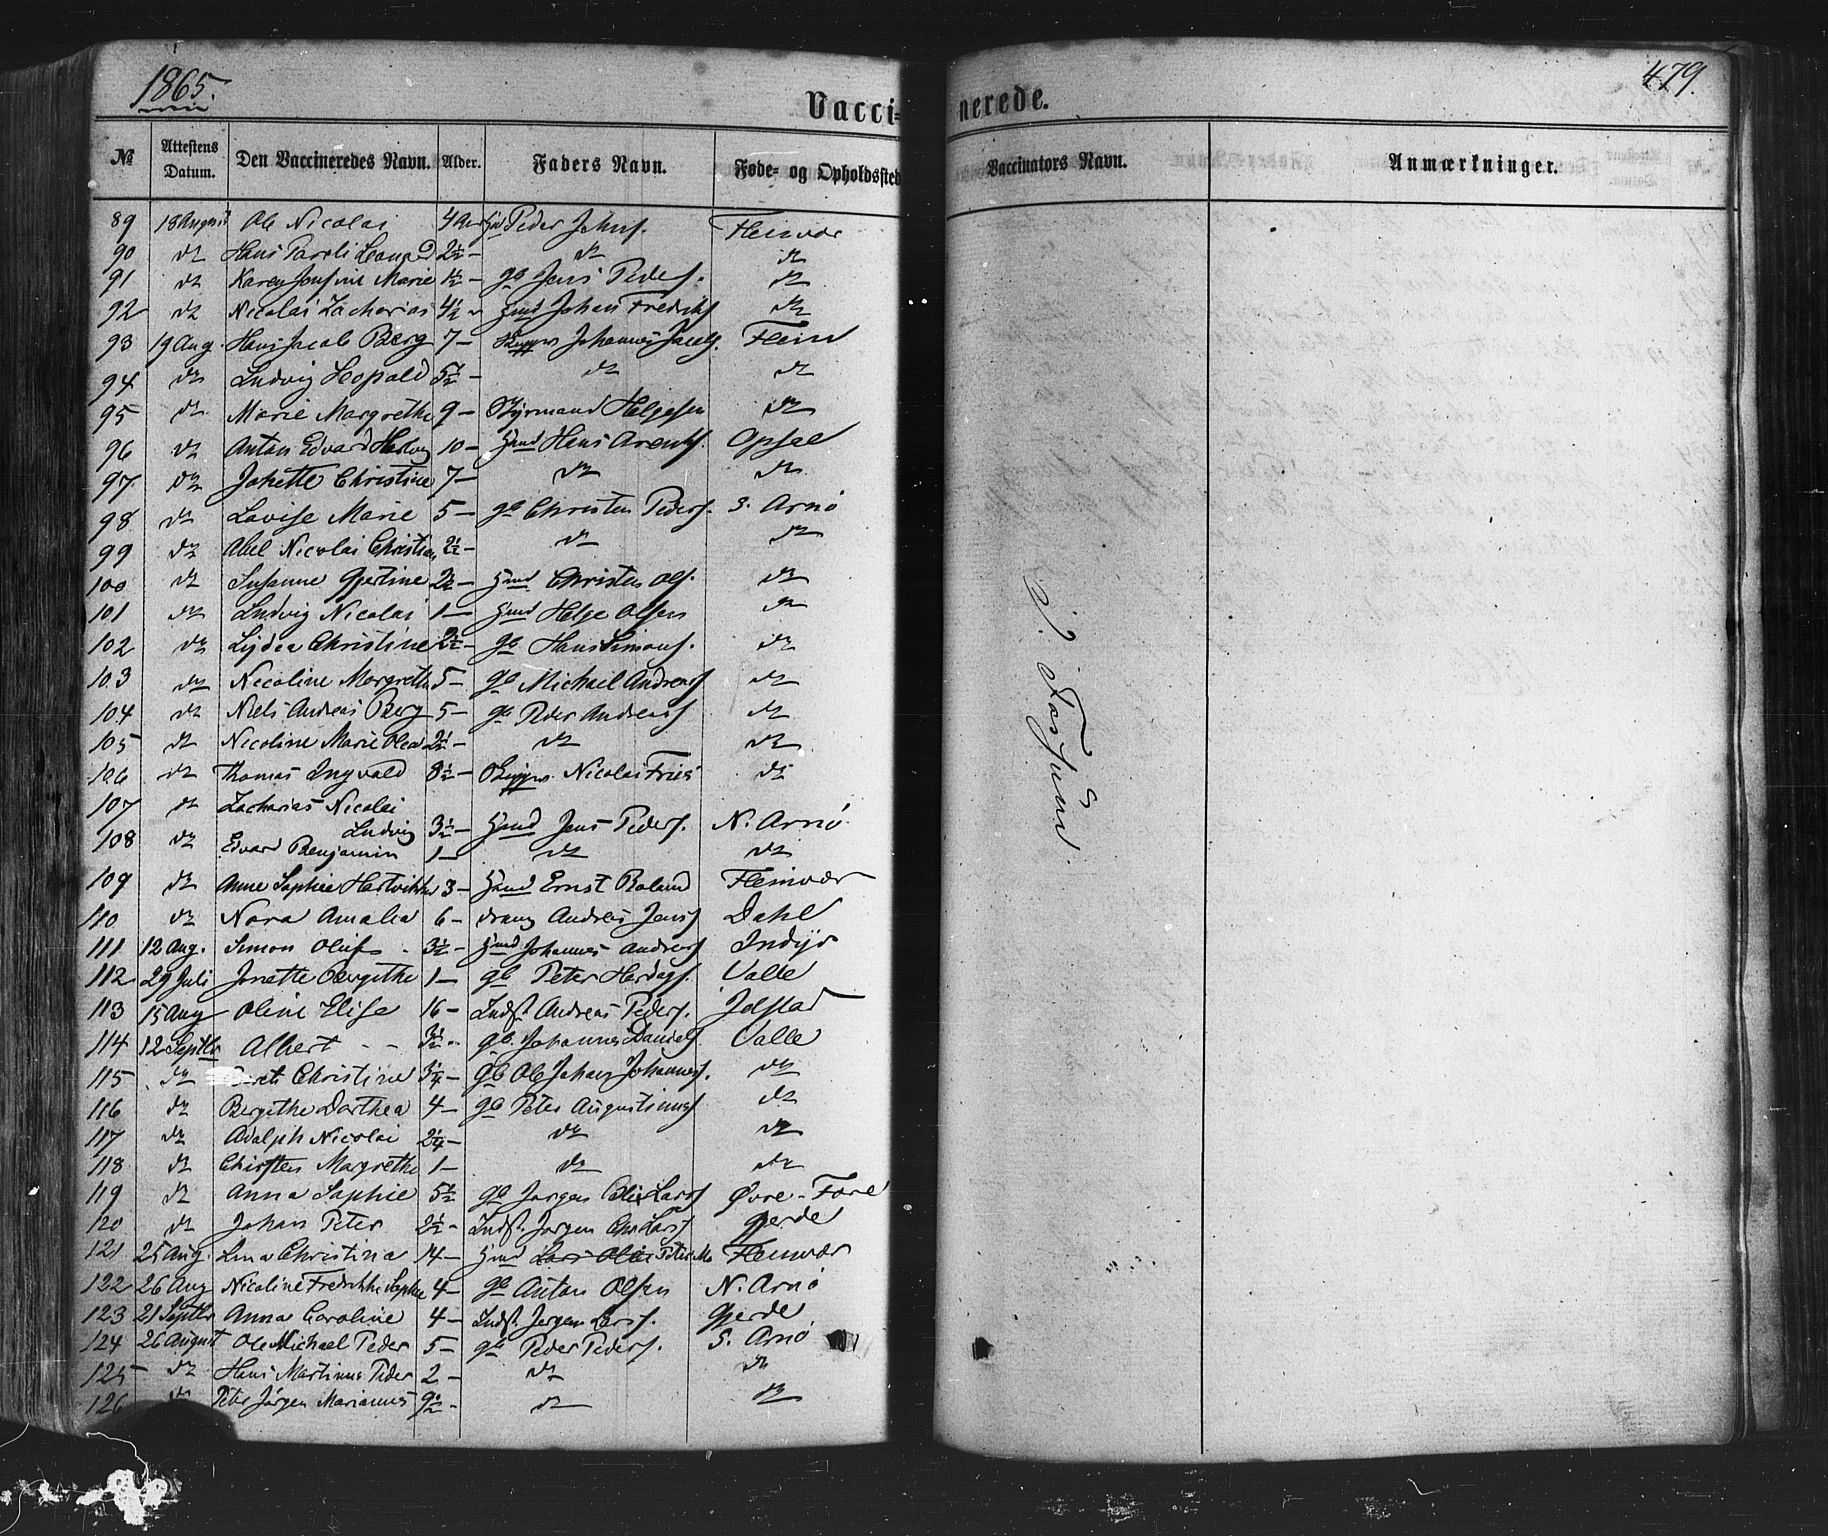 1865.
479.
Vacci- nerede.
№ Attestens Datum. Den Vaccineredes Navn. Alder. Faders Navn. Føde- og Opholdssted Vaccinators Navn. Anmærkninger.
89 18 August Ole Nicolai 4 Peder Johns. Fleinvær
90 do Hans Paroli Leonard 2½ – do do
91 do Karen Josefine Marie 1½ – gb Jens Peders. do
92 do Nicolai Zacharias 4½ Hmd Johan Fredriks do
93 19 Aug. Hans Jacob Berg 7 – Johannes Jacobs. Flein
94 do Ludvig Leopold 5½ – do do
95 do Marie Margrethe 9 – Styrmand Helgesen do
96 do Anton Edvard Hartvig 10 – Hmd Hans Arents. Opsal
97 do Johette Christine 7 – do do
98 do Lovise Marie 5 – gb Christen Peders. S. Arnø
99 do Abel Nicolai Christian 2½ – do do
100 do Susanne Gjertine 2½ – Hmd Christen Ols. do
101 do Ludvig Nicolai 1 – Hmd Helge Olsen do
102 do Lydea Christine 2½ – gb Hans Simons. do
103 do Nicoline Margrethe 5 – gb Michael Andreas do
104 do Niels Andreas Berg 5 – gb Peder Andreas do
105 do Nicoline Marie Olea 2½ – do do
106 do Thomas Ingvald 8½ – Nicolai Fries do
107 do Zacharias Nicolai
Ludvig 3½ – Hmd Jens Peders. N. Arnø
108 do Edvard Benjamin 1 – do do
109 do Anne Sophie Hartvikka 3 – Hmd Ernst Roland Fleinvær
110 do Nora Amalia 6 – Andreas Jens Dahl
111 12 Aug. Simon Oluf 3½ – Hmd Johannes Andreas Indyr
112 29 Juli Jonette Bergithe 1 – gb Peter Hardags. Valle
113 15 Aug Oline Elise 16 – Indst Andreas Peders. Jolstad
114 12 Septbr Albert – – 3½ gb. Johannes Daniels Valle
115 do Christine 3¼ – gb Ole Johan Johannes. do
116 do Bergithe Dorthea 4 – gb Peter Augustinus do
117 do Adolph Nicolai 2¼ – do do
118 do Chirsten Margrethe 1 – do do
119 do Anna Sophie 5½ – gb Jørgen Lars Øvre-Fore
120 do Johan Peter 2½ – Indst. Jørgen Chr Lars Gjerde
121 25 Aug. Lina Christina 14 – Hmd Lars Olai Peter Mo Fleinvær
122 26 Aug Nicoline Fredrikke Sophie 4 – gb Anton Olsen N. Arnø
123 21 Septbr Anna Caroline 4 – Indst. Jørgen Lars. Gjerde
124 26 August Ole Michael Peder 5 – gb Peder Peders. S. Arnø
125 do Hans Martinus Peder 2 – do do
126 do Peter Jørgen Marianus 9½ – do do